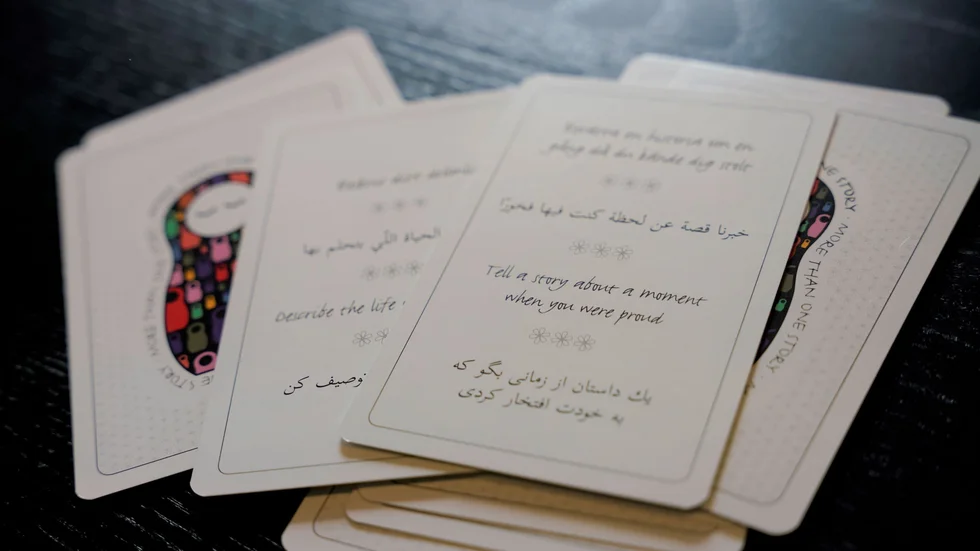 Berätta en historia om en
gång då du kände dig stolt
خبرنا قصة عن لحظة كنت فيها فخورًا
Tell a story about a moment
when you were proud
یك داستان از زمانی بگو که
به خودت افتخار کردی
الحياة الّي بتحلم بها
Describe the life
توصیف کن
NE STORY · MORE THAN ONE STORY ·
MORE THAN
NE STORY